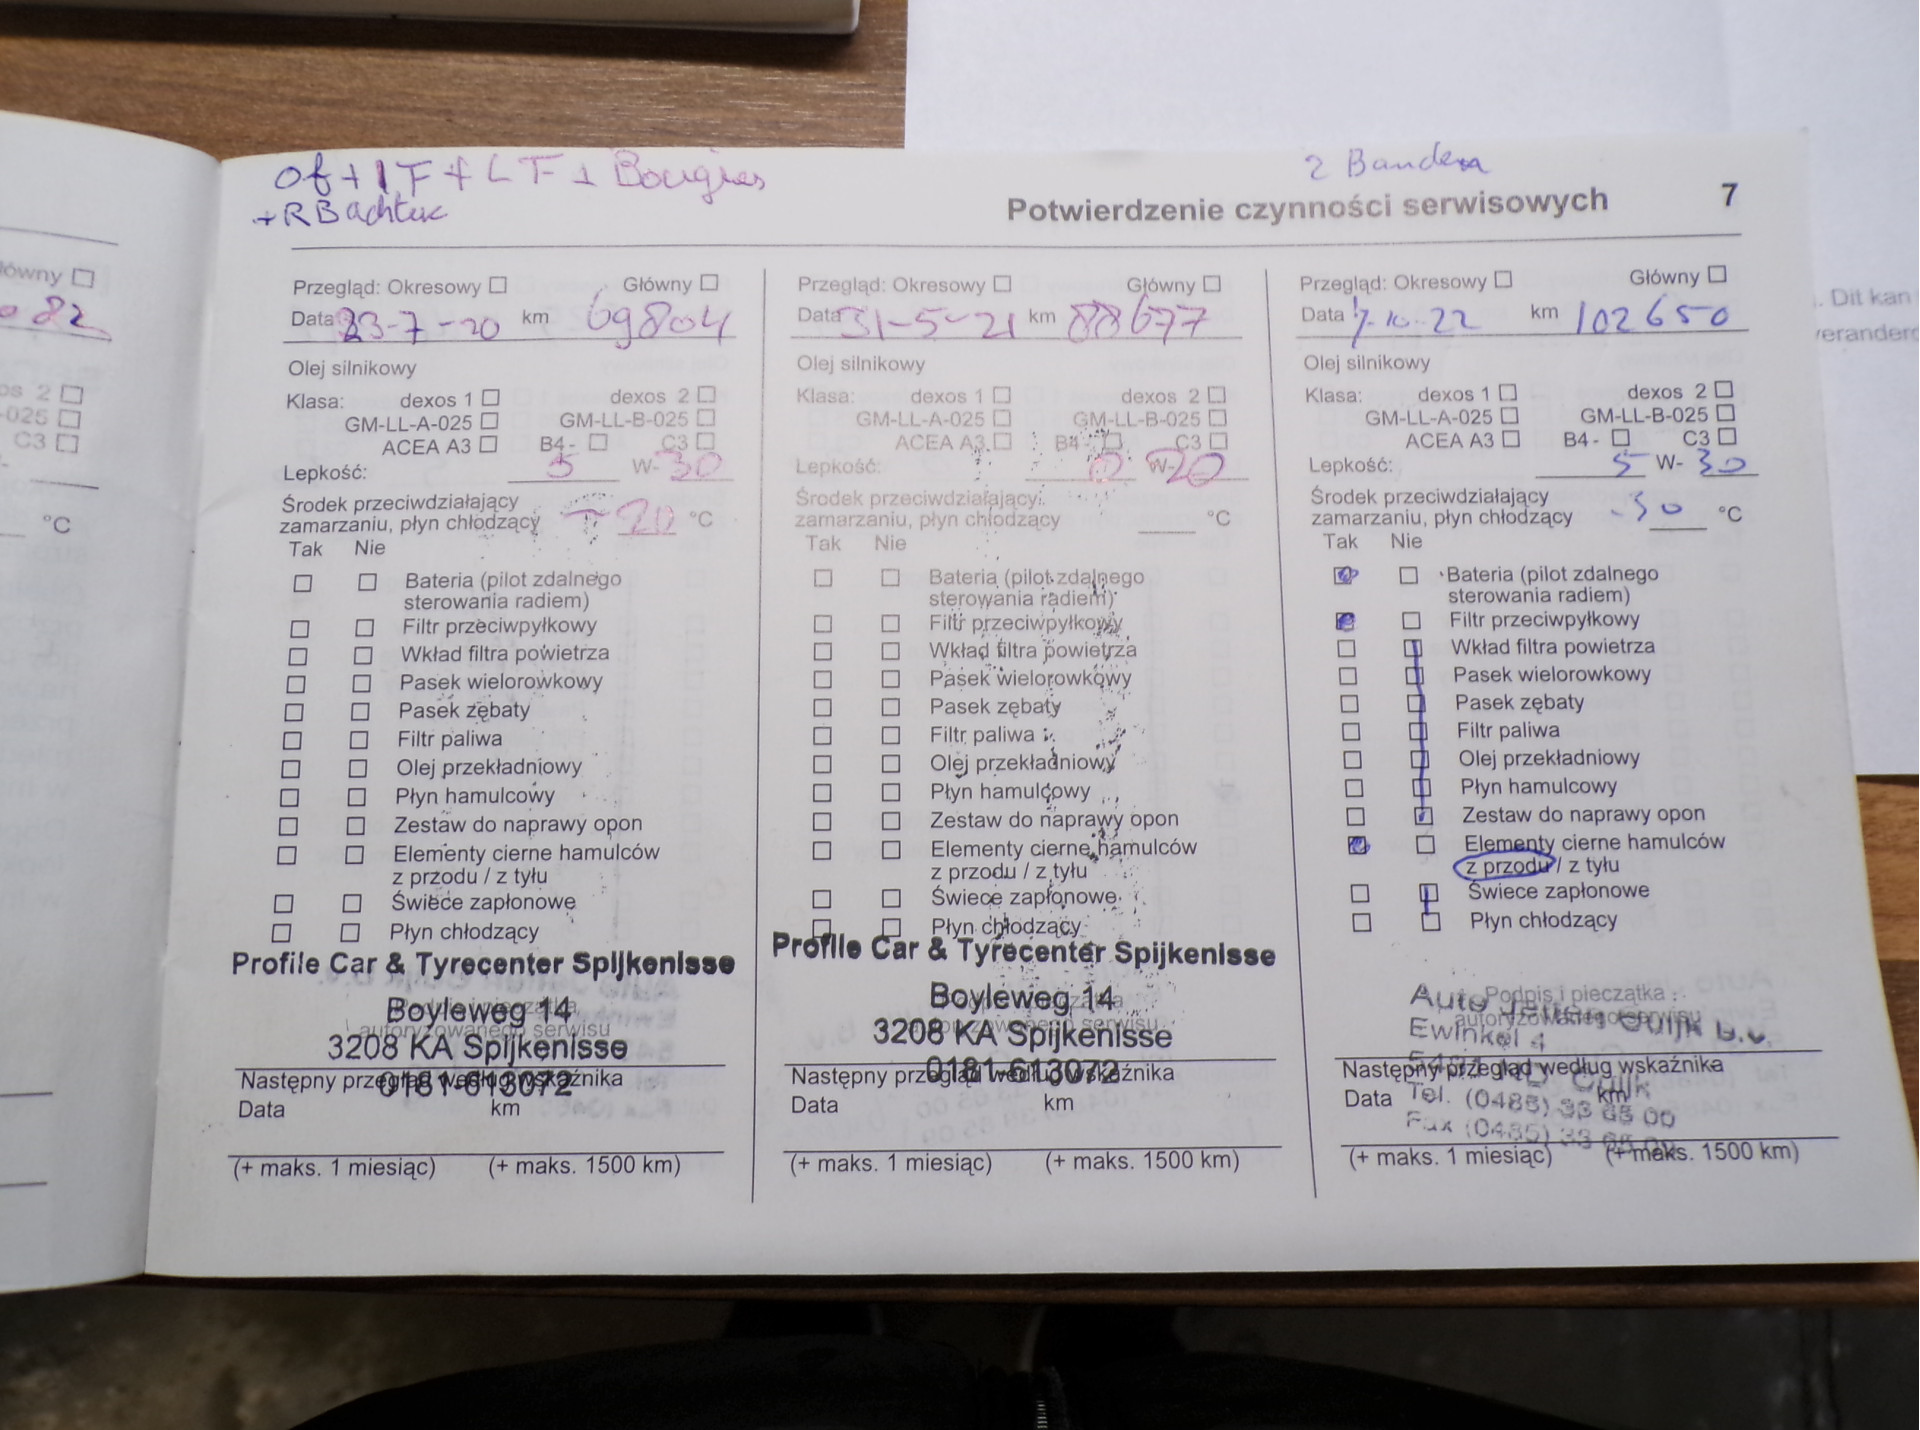 Of + IF + LF + Bougies
+ RB achter
2 Banden
Potwierdzenie czynności serwisowych 7
ówny
082
os 2
-025
C3
°C
Przegląd: Okresowy Główny
Data 23-7-20 km 69804
Olej silnikowy
Klasa: dexos 1 dexos 2
GM-LL-A-025 GM-LL-B-025
ACEA A3 B4- C3
Lepkość: 5 W- 30
Środek przeciwdziałający
zamarzaniu, płyn chłodzący -20 °C
Tak Nie
Bateria (pilot zdalnego
sterowania radiem)
Filtr przeciwpyłkowy
Wkład filtra powietrza
Pasek wielorowkowy
Pasek zębaty
Filtr paliwa
Olej przekładniowy
Płyn hamulcowy
Zestaw do naprawy opon
Elementy cierne hamulców
z przodu / z tyłu
Świece zapłonowe
Płyn chłodzący
Profile Car & Tyrecenter Spijkenisse
Boyleweg 14
Podpis i pieczątka
autoryzowanego serwisu
3208 KA Spijkenisse
0181-613072
Następny przegląd według wskaźnika
Data km
(+ maks. 1 miesiąc) (+ maks. 1500 km)
Przegląd: Okresowy Główny
Data 31-5-21 km 88677
Olej silnikowy
Klasa: dexos 1 dexos 2
GM-LL-A-025 GM-LL-B-025
ACEA A3 B4- C3
Lepkość: 0 W- 20
Środek przeciwdziałający
zamarzaniu, płyn chłodzący °C
Tak Nie
Bateria (pilot zdalnego
sterowania radiem)
Filtr przeciwpyłkowy
Wkład filtra powietrza
Pasek wielorowkowy
Pasek zębaty
Filtr paliwa
Olej przekładniowy
Płyn hamulcowy
Zestaw do naprawy opon
Elementy cierne hamulców
z przodu / z tyłu
Świece zapłonowe
Płyn chłodzący
Profile Car & Tyrecenter Spijkenisse
Boyleweg 14
3208 KA Spijkenisse
0181-613072
Następny przegląd według wskaźnika
Data km
(+ maks. 1 miesiąc) (+ maks. 1500 km)
Przegląd: Okresowy Główny
Data 7-10-22 km 102650
Olej silnikowy
Klasa: dexos 1 dexos 2
GM-LL-A-025 GM-LL-B-025
ACEA A3 B4- C3
Lepkość: 5 W- 30
Środek przeciwdziałający
zamarzaniu, płyn chłodzący -30 °C
Tak Nie
Bateria (pilot zdalnego
sterowania radiem)
Filtr przeciwpyłkowy
Wkład filtra powietrza
Pasek wielorowkowy
Pasek zębaty
Filtr paliwa
Olej przekładniowy
Płyn hamulcowy
Zestaw do naprawy opon
Elementy cierne hamulców
z przodu / z tyłu
Świece zapłonowe
Płyn chłodzący
Podpis i pieczątka
autoryzowanego serwisu
Auto Cuijk B.V.
Ewinkel 4
Cuijk
Następny przegląd według wskaźnika
Data km
Tel. (0485) 33 65 00
Fax (0485) 33
(+ maks. 1 miesiąc) (+ maks. 1500 km)
. Dit kan